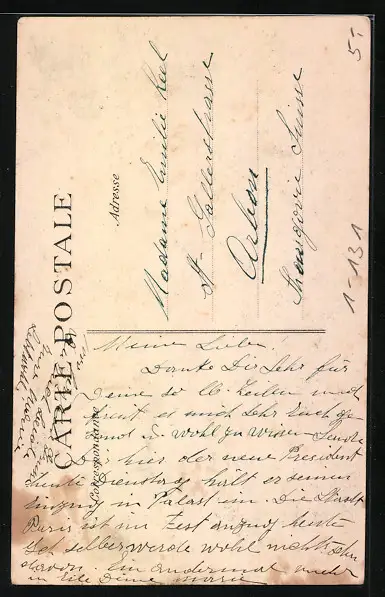 CARTE POSTALE
Correspondance
Adresse
Madame Emilie Keel
St Gallerstrasse
Arbon
Thurgovie Suisse
5.-
1-131
Meine Liebe!
Danke Dir sehr für
Deine so lb. Zeilen und
freut es mich sehr Euch ge-
sund u. wohl zu wissen
hier der neue President
heute Dienstag hält er seinen
Einzug in Palast ein. Die Stadt
Paris ist im Fest anzug heute
Ich selber werde wohl nichts sehn
davon. Ein andermal mehr
in Eile Deine Marie